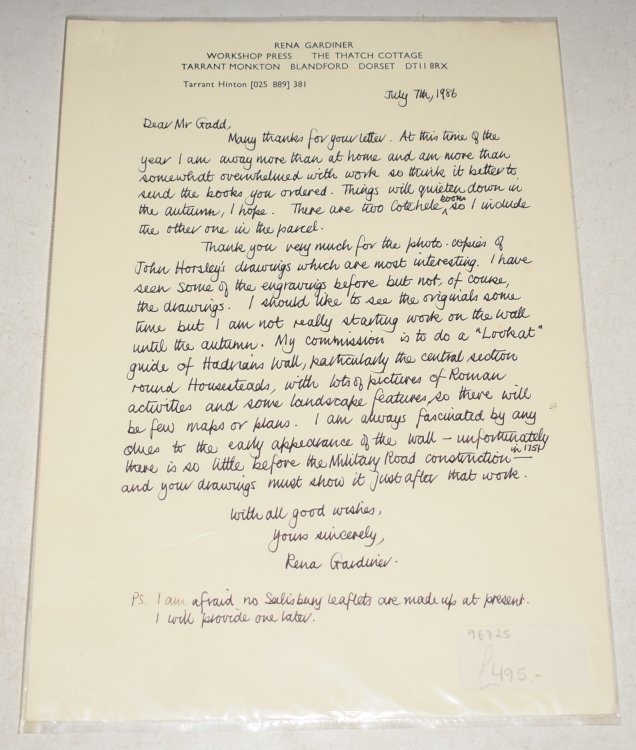 RENA GARDINER
WORKSHOP PRESS THE THATCH COTTAGE
TARRANT MONKTON BLANDFORD DORSET DT11 8RX
Tarrant Hinton [025 889] 381
July 7th, 1986
Dear Mr Gadd,
Many thanks for your letter. At this time of the
year I am away more than at home and am more than
somewhat overwhelmed with work so think it better to
send the books you ordered. Things will quieten down in
the autumn, I hope. There are two Cotehele books, so I include
the other one in the parcel.
Thank you very much for the photo-copies of
John Horsley's drawings which are most interesting. I have
seen some of the engravings before but not, of course,
the drawings. I should like to see the originals some
time but I am not really starting work on the wall
until the autumn. My commission is to do a "Look at"
guide of Hadrians Wall, particularly the central section
round Housesteads, with lots of pictures of Roman
activities and some landscape features, so there will
be few maps or plans. I am always fascinated by any
clues to the early appearance of the wall – unfortunately
there is so little before the Military Road construction in 1751 –
and your drawings must show it just after that work.
With all good wishes,
Yours sincerely,
Rena Gardiner.
PS. I am afraid no Salisbury leaflets are made up at present.
I will provide one later.
96725
£495.-